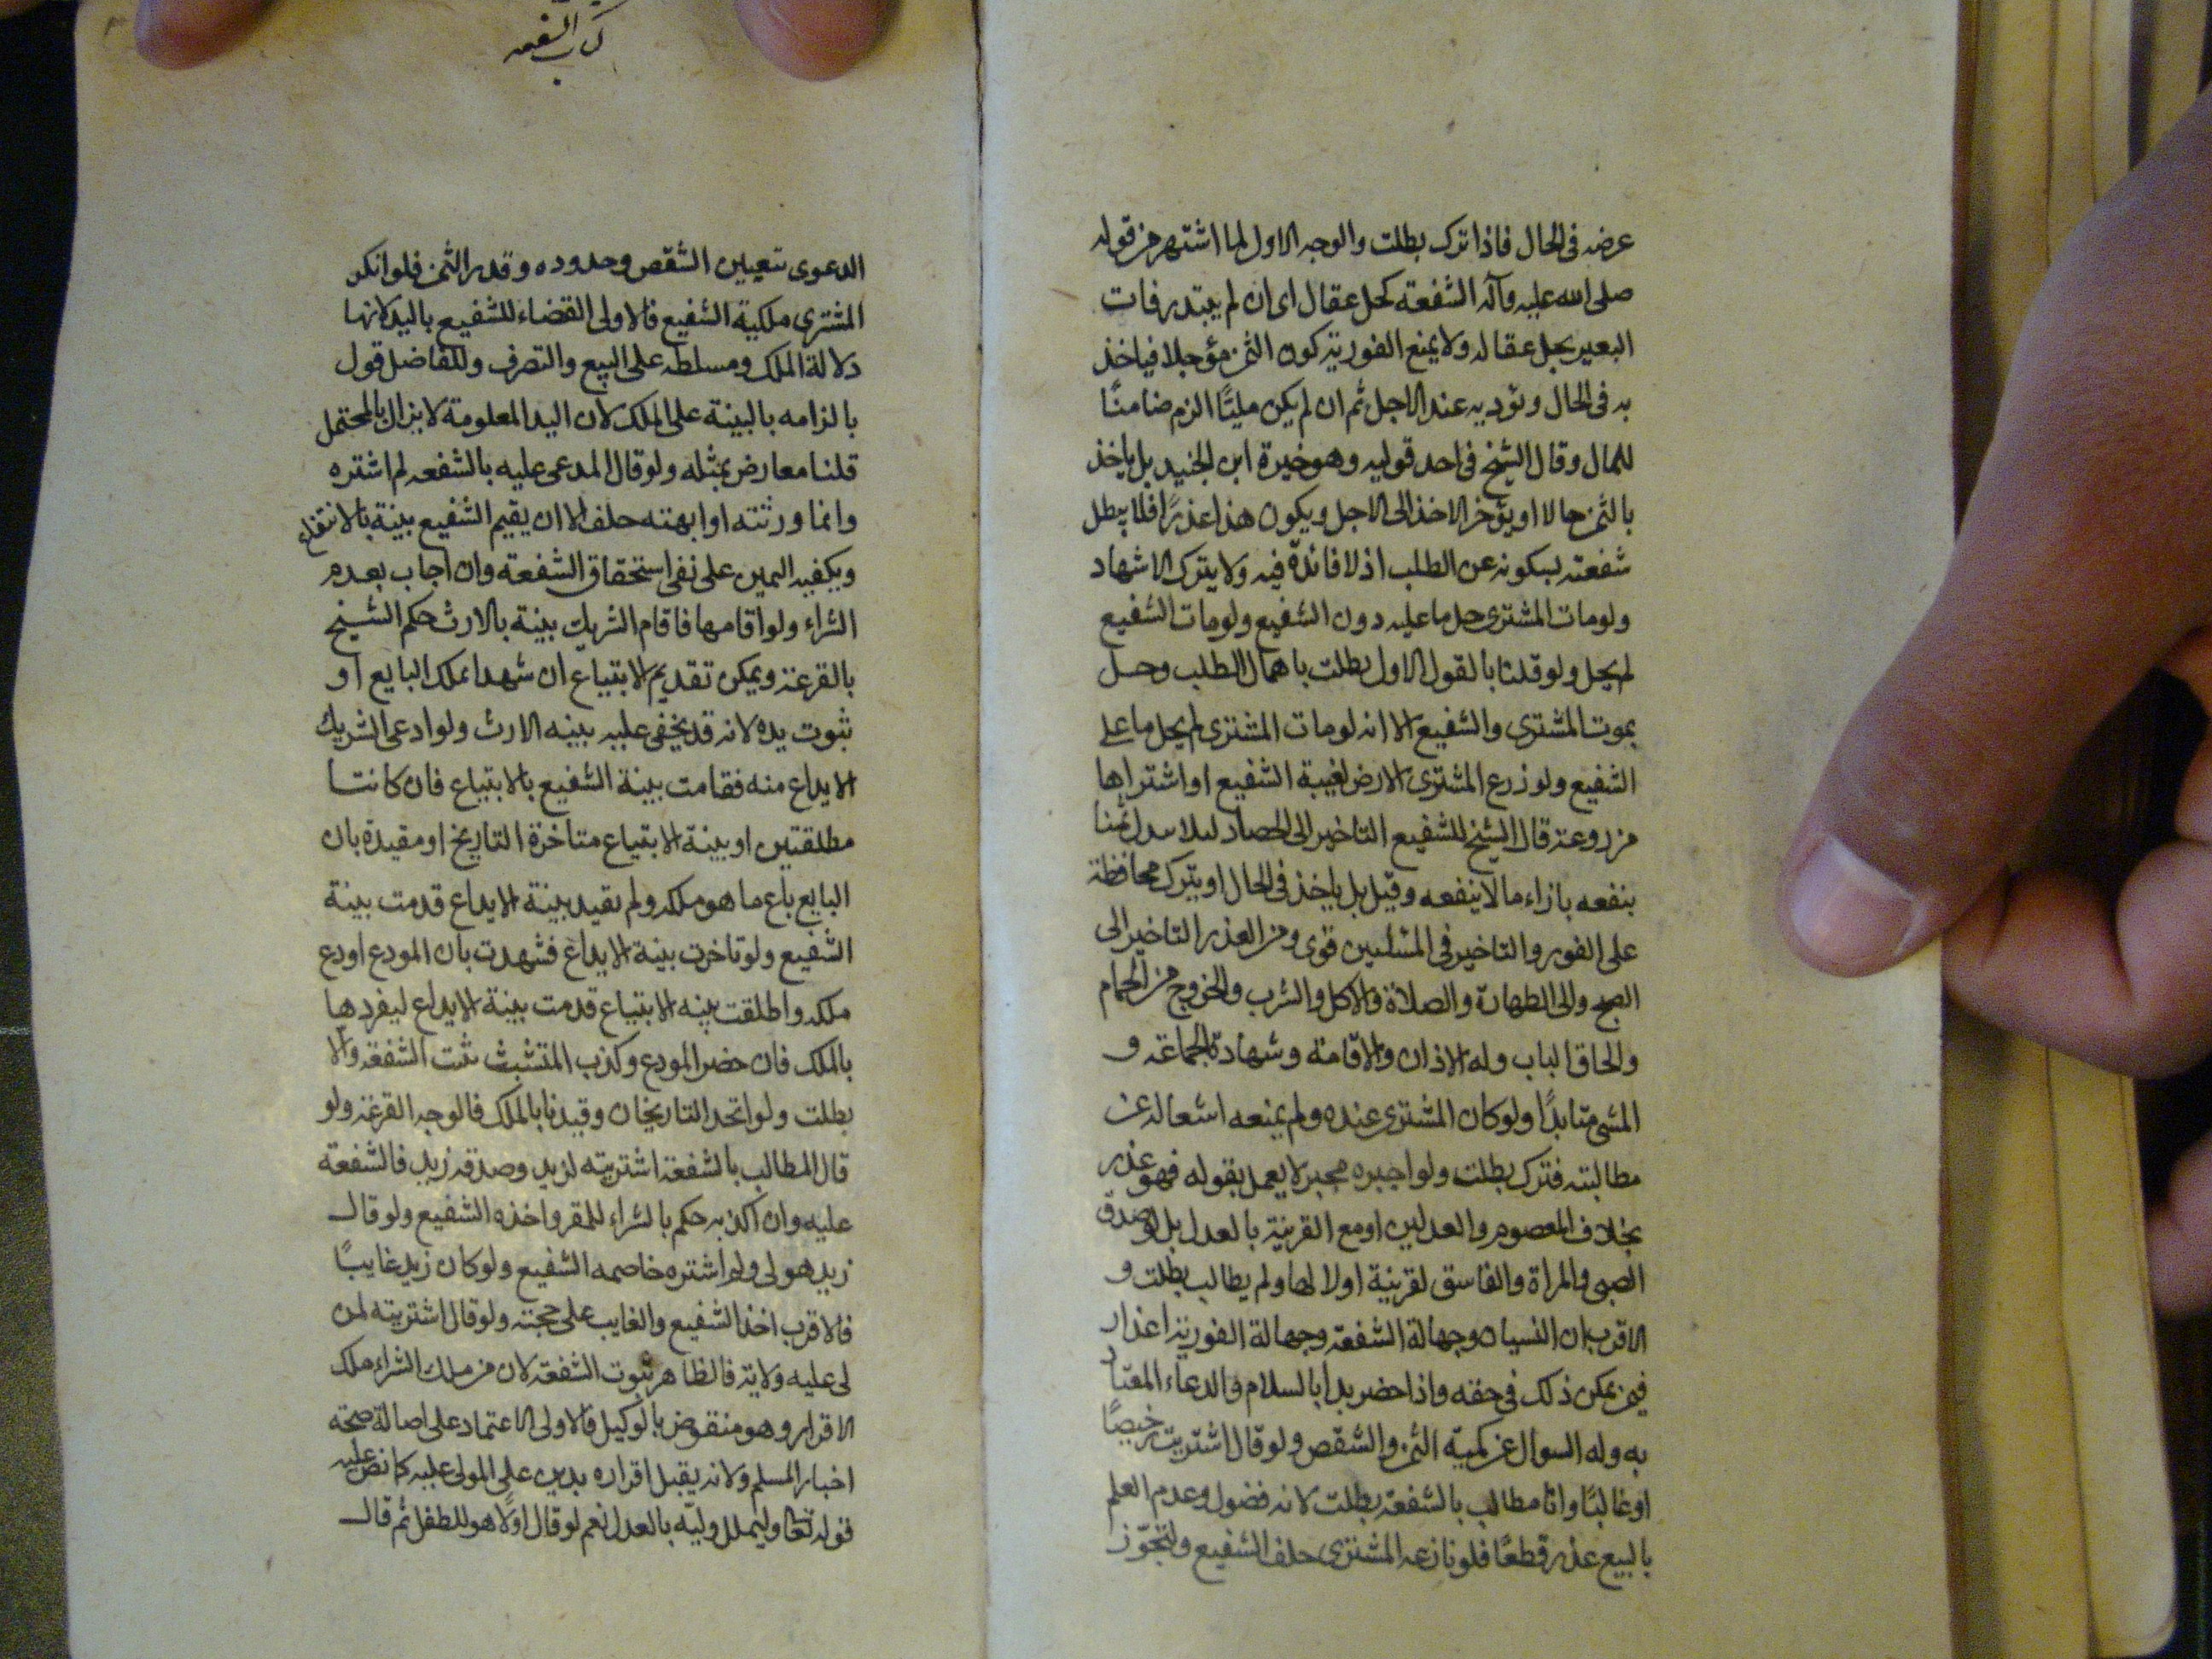 عرضه فى الحال فاذا ترك بطلت والوجه الاول لما اشتهر من قوله
صلى الله عليه وآله الشفعة كحل عقال اى ان لم يبتدر فات
البعير بحل عقاله ولا يمنع الفورية كون الثمن مؤجلا فياخذ
به فى الحال ويؤديه عند الاجل ثم ان لم يكن مليًّا الزم ضامنًا
للمال وقال الشيخ فى احد قوليه وهو خيرة ابن الجنيد بل ياخذ
بالثمن حالا او يؤخر الاخذ الى الاجل ويكون هذا عذرًا فلا يبطل
شفعته بسكوته عن الطلب اذ لا فائدة فيه ولا يترك الاشهاد
ولو مات المشترى حل ما عليه دون الشفيع ولو مات الشفيع
لم يحل ولو قلنا بالقول الاول بطلت باهمال الطلب وحل
بموت المشترى والشفيع الا انه لو مات المشترى لم يحل ما على
الشفيع ولو زرع المشترى الارض لغيبة الشفيع او اشتراها
مزروعة قال الشيخ للشفيع التاخير الى الحصاد ليلا يبدل ثمنا
ينفعه بازاء ما لا ينفعه وقيل بل ياخذ فى الحال او يترك محافظة
على الفور والتاخير فى المسئلتين قوى ومن العذر التاخير الى
الصبح والى الطهارة والصلاة والاكل والشرب والخروج من الحمام
والحاق الباب وله الاذان والاقامة وشهادة الجماعة و
المشى متايدًا ولو كان المشترى عنده ولم يمنعه اشتغاله عن
مطالبته فترك بطلت ولو اخبره مخبر لا يعمل بقوله فهو عذر
بخلاف المعصوم والعدلين او مع القرينة بالعدل بل لو صدق
الصبى والمراة والفاسق لقرينة اولا لها ولم يطالب بطلت و
الاقرب ان النسيان وجهالة الشفعة وجهالة الفورية اعذار
فيمن يمكن ذلك فى حقه واذا حضر بدا بالسلام والدعاء المعتاد
به وله السوال عن كمية الثمن والشقص ولو قال اشتريت رخيصًا
او غاليًا وانا مطالب بالشفعة بطلت لانه فضول وعدم العلم
بالبيع عذر قطعًا فلو نازعه المشترى حلف الشفيع ولتجوّز
كتاب الشفعه
الدعوى تتعيين الشقص وحدوده وقدر الثمن فلو انكر
المشترى ملكية الشفيع فالاولى القضاء للشفيع باليد لانها
دلالة الملك ومسلطه على البيع والتصرف وللفاضل قول
بالزامه بالبينة على الملك لان اليد المعلومة لا يزال بالمحتمل
قلنا معارض بمثله ولو قال المدعى عليه بالشفعه لم اشتره
وانما ورثته او ابهبته حلف الا ان يقيم الشفيع بينة بالانتقال
ويكفيه اليمين على نفى استحقاق الشفعة وان اجاب بعدم
الشراء ولو اقامها فاقام الشريك بينة بالارث حكم الشيخ
بالقرعة ويمكن تقديم الابتياع ان شهدا بملك البايع او
ثبوت يده لانه قد يخفى عليه بينه الارث ولو ادعى الشريك
الايداع منه فقامت بينة الشفيع بالابتياع فان كانتا
مطلقتين او بينة الابتياع متاخرة التاريخ او مقيدة بان
البايع باع ما هو ملكه ولم تقيد بينة الايداع قدمت بينة
الشفيع ولو تاخرت بينة الايداع فشهدت بان المودع اودع
ملكه واطلقت بينه الابتياع قدمت بينة الايداع ليفردها
بالملك فان حضر المودع وكذب المتشبث ثبت الشفعة والا
بطلت ولو اتحد التاريخان وقيدنا بالملك فالوجه القرعة ولو
قال المطالب بالشفعة اشتريته لزيد وصدقه زيد فالشفعة
عليه وان اكذبه حكم بالشراء للمقر واخذه الشفيع ولو قال
زيد هو لى ولم اشتره خاصمه الشفيع ولو كان زيد غايبًا
فالاقرب اخذ الشفيع والغايب على حجته ولو قال اشتريته لمن
لى عليه ولاية فالظاهر ثبوت الشفعة لان من ملك الشراء ملك
الاقرار وهو منقوض بالوكيل فالاولى الاعتماد على اصالة صحة
اخبار المسلم ولانه يقبل اقراره بدين على المولى عليه كما نص عليه
قوله تعالى وليملل وليه بالعدل نعم لو قال اولًا هو للطفل ثم قال